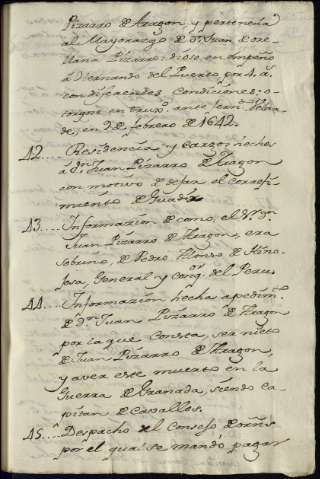 Pizarro de Aragon, y pertenecia
al Mayorazgo de Dn. Juan de Ore
llana Pizarro: diose en empeño
a Dicernando del Puerto, por 4. a.
con diferentes condiciones: o-
torgose en Trux.º ante Juan
de, en 9 de febrero de 1642.
42... Residencia y cargos hechos
a Dn. Juan Pizarro de Aragon
con motivo de dejar el Correxi-
miento de Guadix
43... Informazion de como, el Sr. Dn.
Juan Pizarro de Aragon, era
sobrino, de Pedro Alonso de Hino-
josa, General y Conqr. del Peru.
44... Informazion hecha a pedim.to
de Dn. Juan Pizarro de Aragon
por la que consta, ser nieto
de Juan Pizarro de Aragon,
y aver este muerto en la
Guerra de Granada, siendo ca
pitan de Cavallos.
45... Despacho del Consejo de orñs
por el qual se mandó pagar